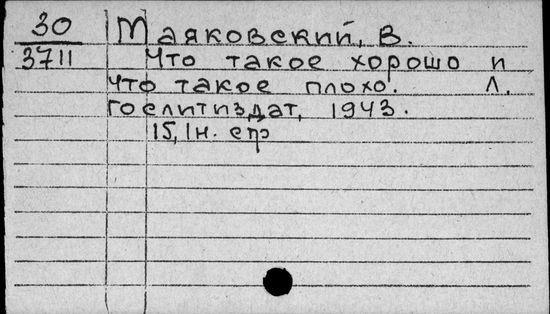 30 Маяковский, В.
3711 Что такое хорошо и
что такое плохо. Л.
Гослитиздат, 1943.
15, 1 н. стр